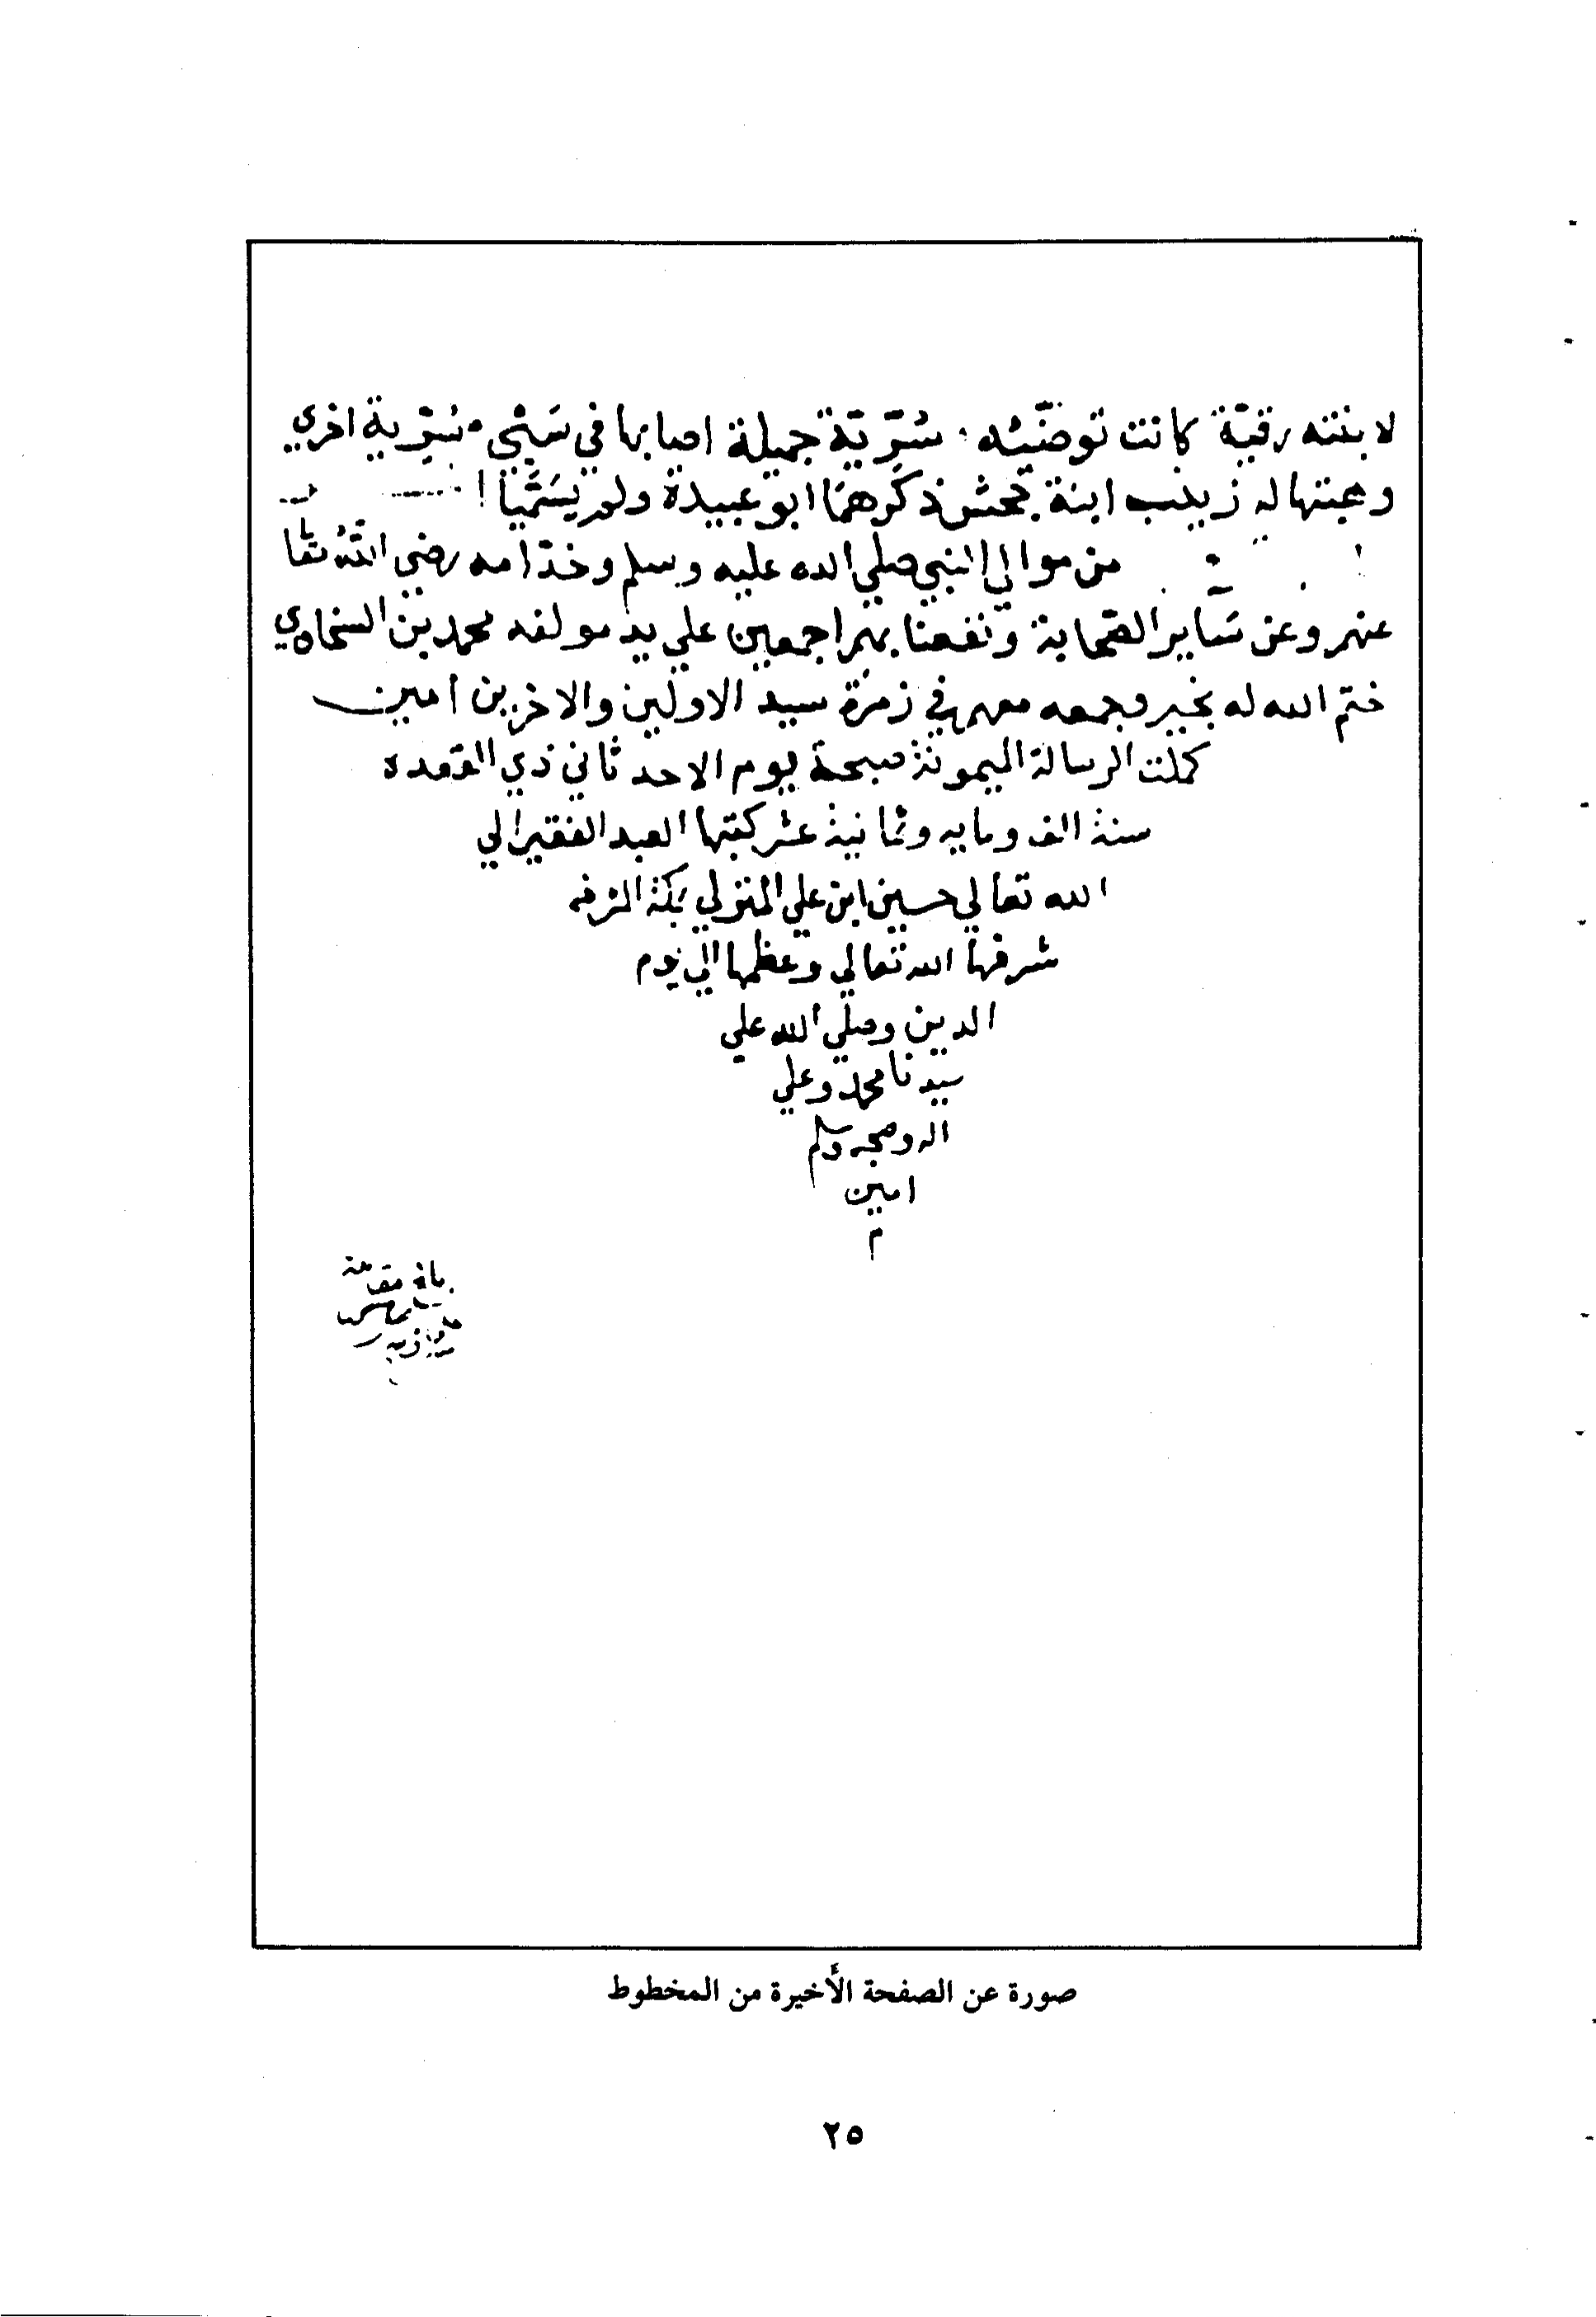 لابنته رقيّة كانت توضّئه . سُرّيّة جميلة اصابها في سَبْيٍ . سُرّية اخري
وهبتها له زينب ابنة جحش ذكرهمَا ابو عبيدة ولم يسَمّها
من موالي النبي صلي الله عليه وسلم وخدّامه رضي الله تعا
عنهم وعن سَاير الصّحابة ونفعنا بهم اجمعين علي يد مولفه محمد بن السخاوي
ختم الله له بخير وجمعه معهم في زمرة سيد الاولين والاخرين امين
كملت الرسالة الميمونة صبحة يوم الاحد ثاني ذي القعدة
سنة الف ومايه وثمانية عشر كتبها العبد الفقير الي
الله تعالي حسين ابن علي المتولي بمكة المشرفه
شرفها الله تعالي وعظمها الي يوم
الدين وصلي الله علي
سيدنا محمد وعلي
اله وصحبه وسلم
امين
م
صورة عن الصفحة الأخيرة من المخطوط
٢٥